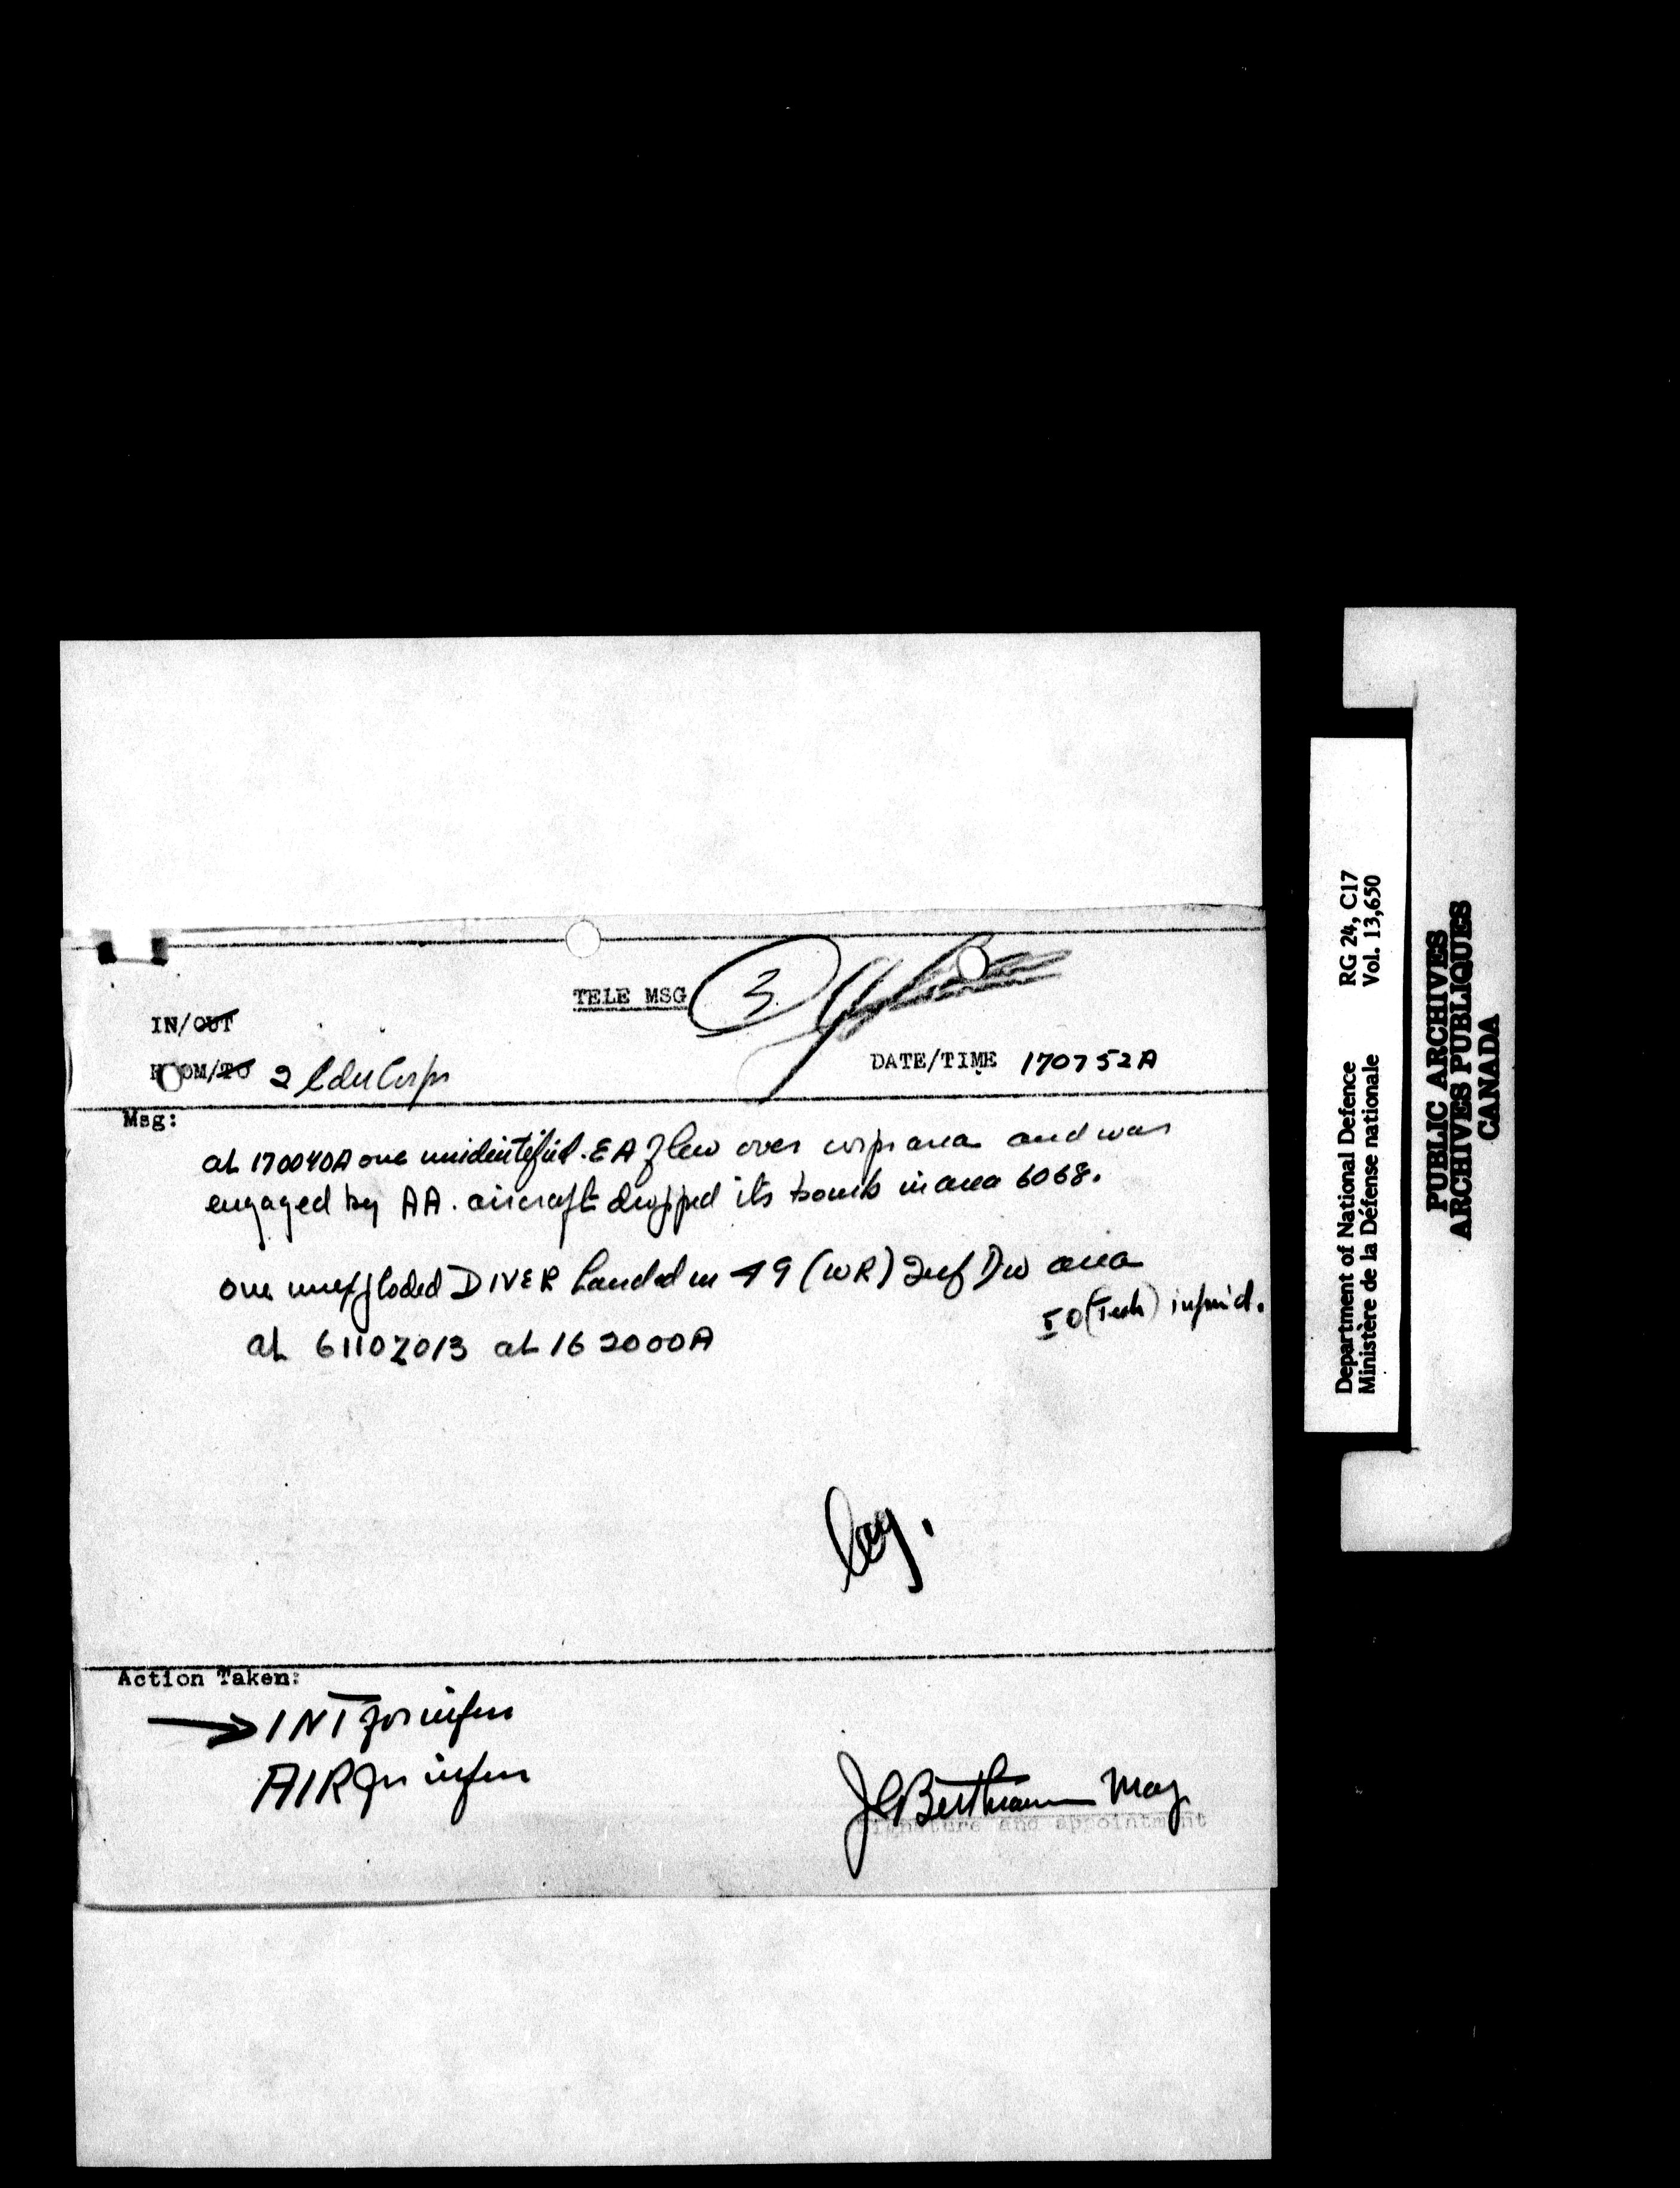 TELE MSG 3
IN/OUT
FROM/TO 2 Cdn Corps DATE/TIME 170752A
Msg:
at 170040A one unidentified. EA flew over corps area and was
engaged by AA. aircraft dropped its bomb in area 6068.
one unexploded DIVER landed in 49 (WR) Inf Div area
IO (Tech) infm'd.
at 61107013 at 16 2000A
Action Taken:
→ INT for infm
AIR for infm
Maj
signature and appointment
Department of National Defence RG 24, C17
Ministère de la Défense nationale Vol. 13,650
PUBLIC ARCHIVES
ARCHIVES PUBLIQUES
CANADA